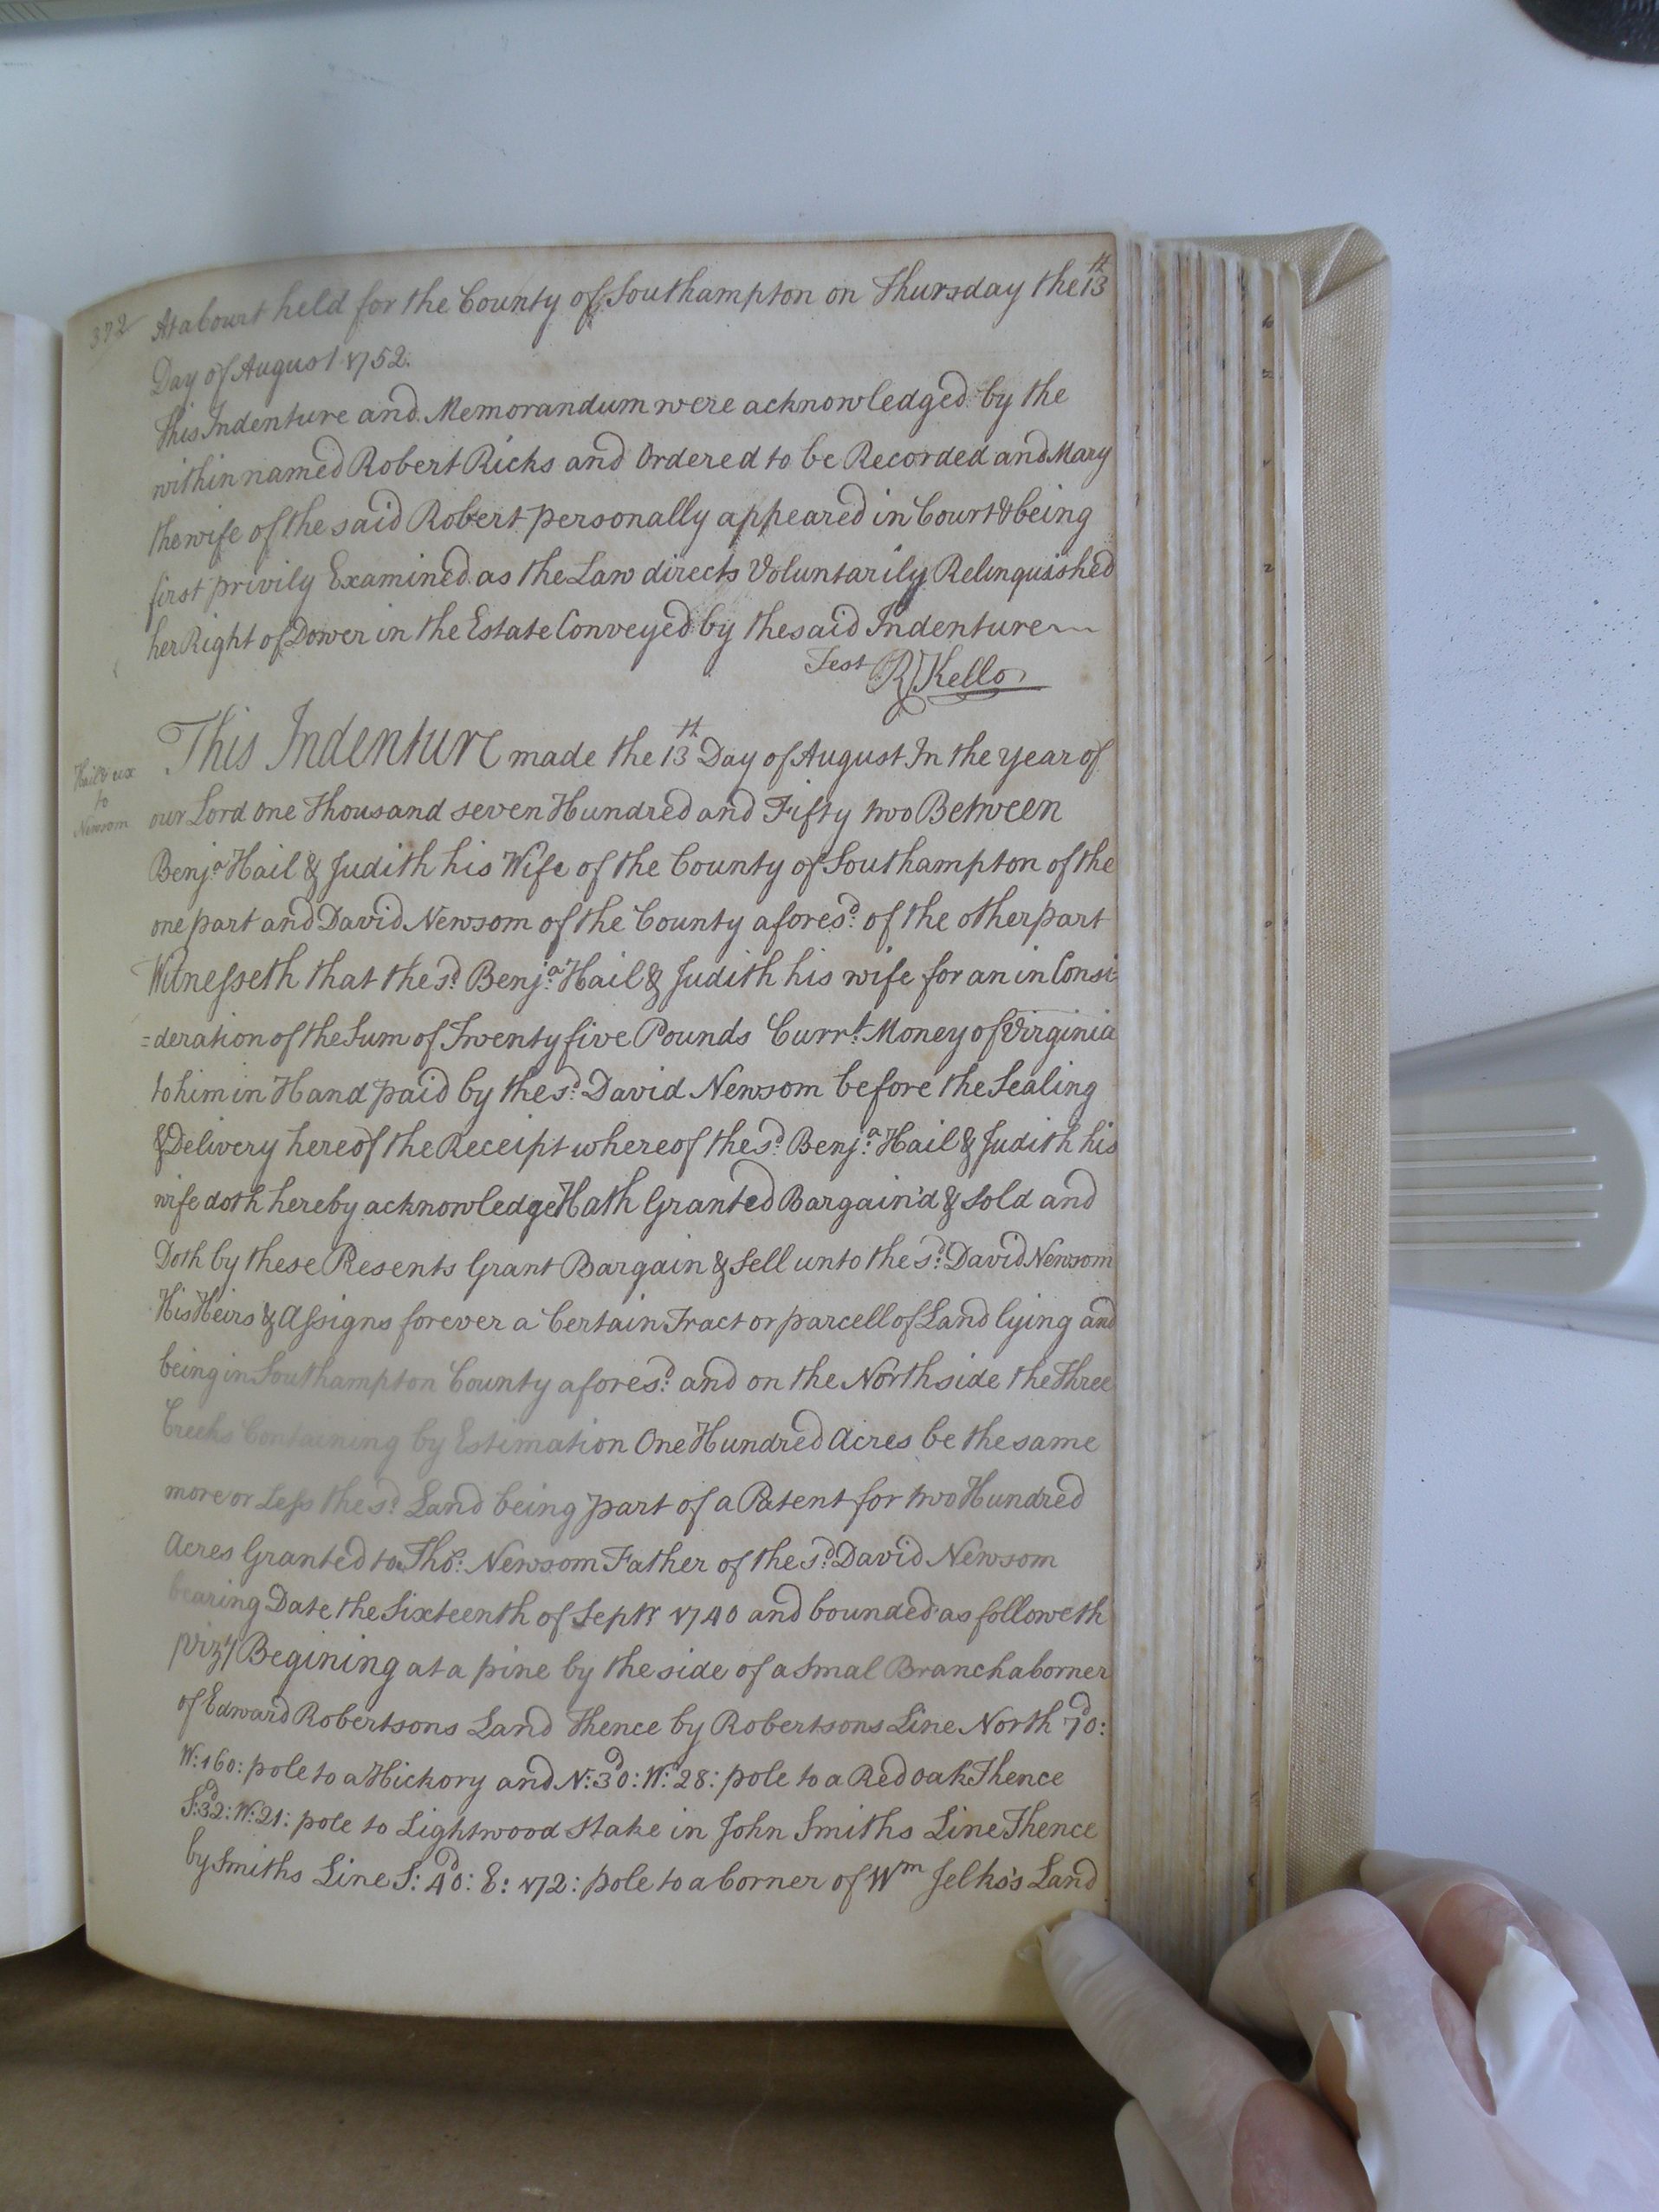 372
At a Court held for the County of Southampton on Thursday the 13th
Day of August 1752.
This Indenture and Memorandum were acknowledged by the
within named Robert Ricks and Ordered to be Recorded and Mary
the wife of the said Robert personally appeared in Court & being
first privily Examined as the Law directs Voluntarily Relinquished
her Right of Dower in the Estate Conveyed by the said Indenture
Test R Kello
Hail & ux
to
Newsom
This Indenture made the 13th Day of August In the year of
our Lord one Thousand seven Hundred and Fifty two Between
Benja. Hail & Judith his Wife of the County of Southampton of the
one part and David Newsom of the County aforesd. of the other part
Witnesseth that the sd. Benja. Hail & Judith his wife for an in Consi-
=deration of the Sum of Twenty five Pounds Currt. Money of Virginia
to him in Hand paid by the sd. David Newsom before the Sealing
& Delivery hereof the Receipt whereof the sd. Benja. Hail & Judith his
wife doth hereby acknowledge Hath Granted Bargain'd & Sold and
Doth by these Presents Grant Bargain & Sell unto the sd. David Newsom
His Heirs & Assigns forever a Certain Tract or parcell of Land lying and
being in Southampton County aforesd. and on the North side the Three
Creeks Containing by Estimation One Hundred Acres be the same
more or Less the sd. Land being part of a Patent for two Hundred
Acres Granted to Tho.s Newsom Father of the sd. David Newsom
bearing Date the Sixteenth of Septr 1740 and bounded as followeth
(vizt) Begining at a pine by the side of a Smal Branch a Corner
of Edward Robertsons Land Thence by Robertsons Line North 70d:
W: 160: pole to a Hickory and N: 30d: W: 28: pole to a Red oak Thence
S: 32d: W: 21: pole to Lightwood Stake in John Smiths Line Thence
by Smiths Line S: 40d: E: 172: pole to a Corner of Wm Jelks's Land